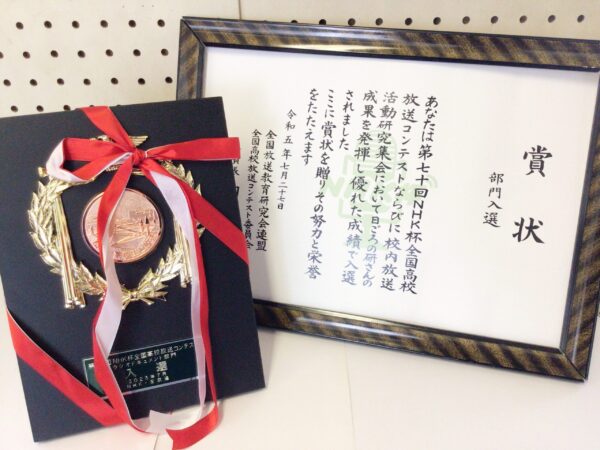 賞状
部門入選
あなたは第七十回NHK杯全国高校
放送コンテストならびに校内放送
活動研究集会において日ごろの研さんの
成果を発揮し優れた成績で入選
されました
ここに賞状を贈りその努力と栄誉
をたたえます
令和五年七月二十七日
全国放送教育研究会連盟
全国高校放送コンテスト委員会
NHK杯全国高校放送コンテスト
ラジオドキュメント部門
入選
2023年7月